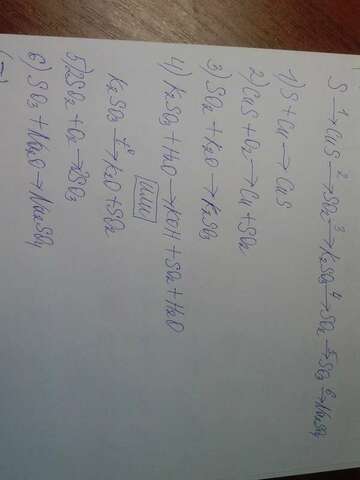 S →¹ CuS →² SO₂ →³ K₂SO₃ →⁴ SO₂ →⁵ SO₃ →⁶ Na₂SO₄
1) S + Cu → CuS
2) CuS + O₂ → Cu + SO₂
3) SO₂ + K₂O → K₂SO₃
4) K₂SO₃ + H₂O → KOH + SO₂ + H₂O
или
K₂SO₃ →t° K₂O + SO₂
5) 2SO₂ + O₂ → 2SO₃
6) SO₃ + Na₂O → Na₂SO₄